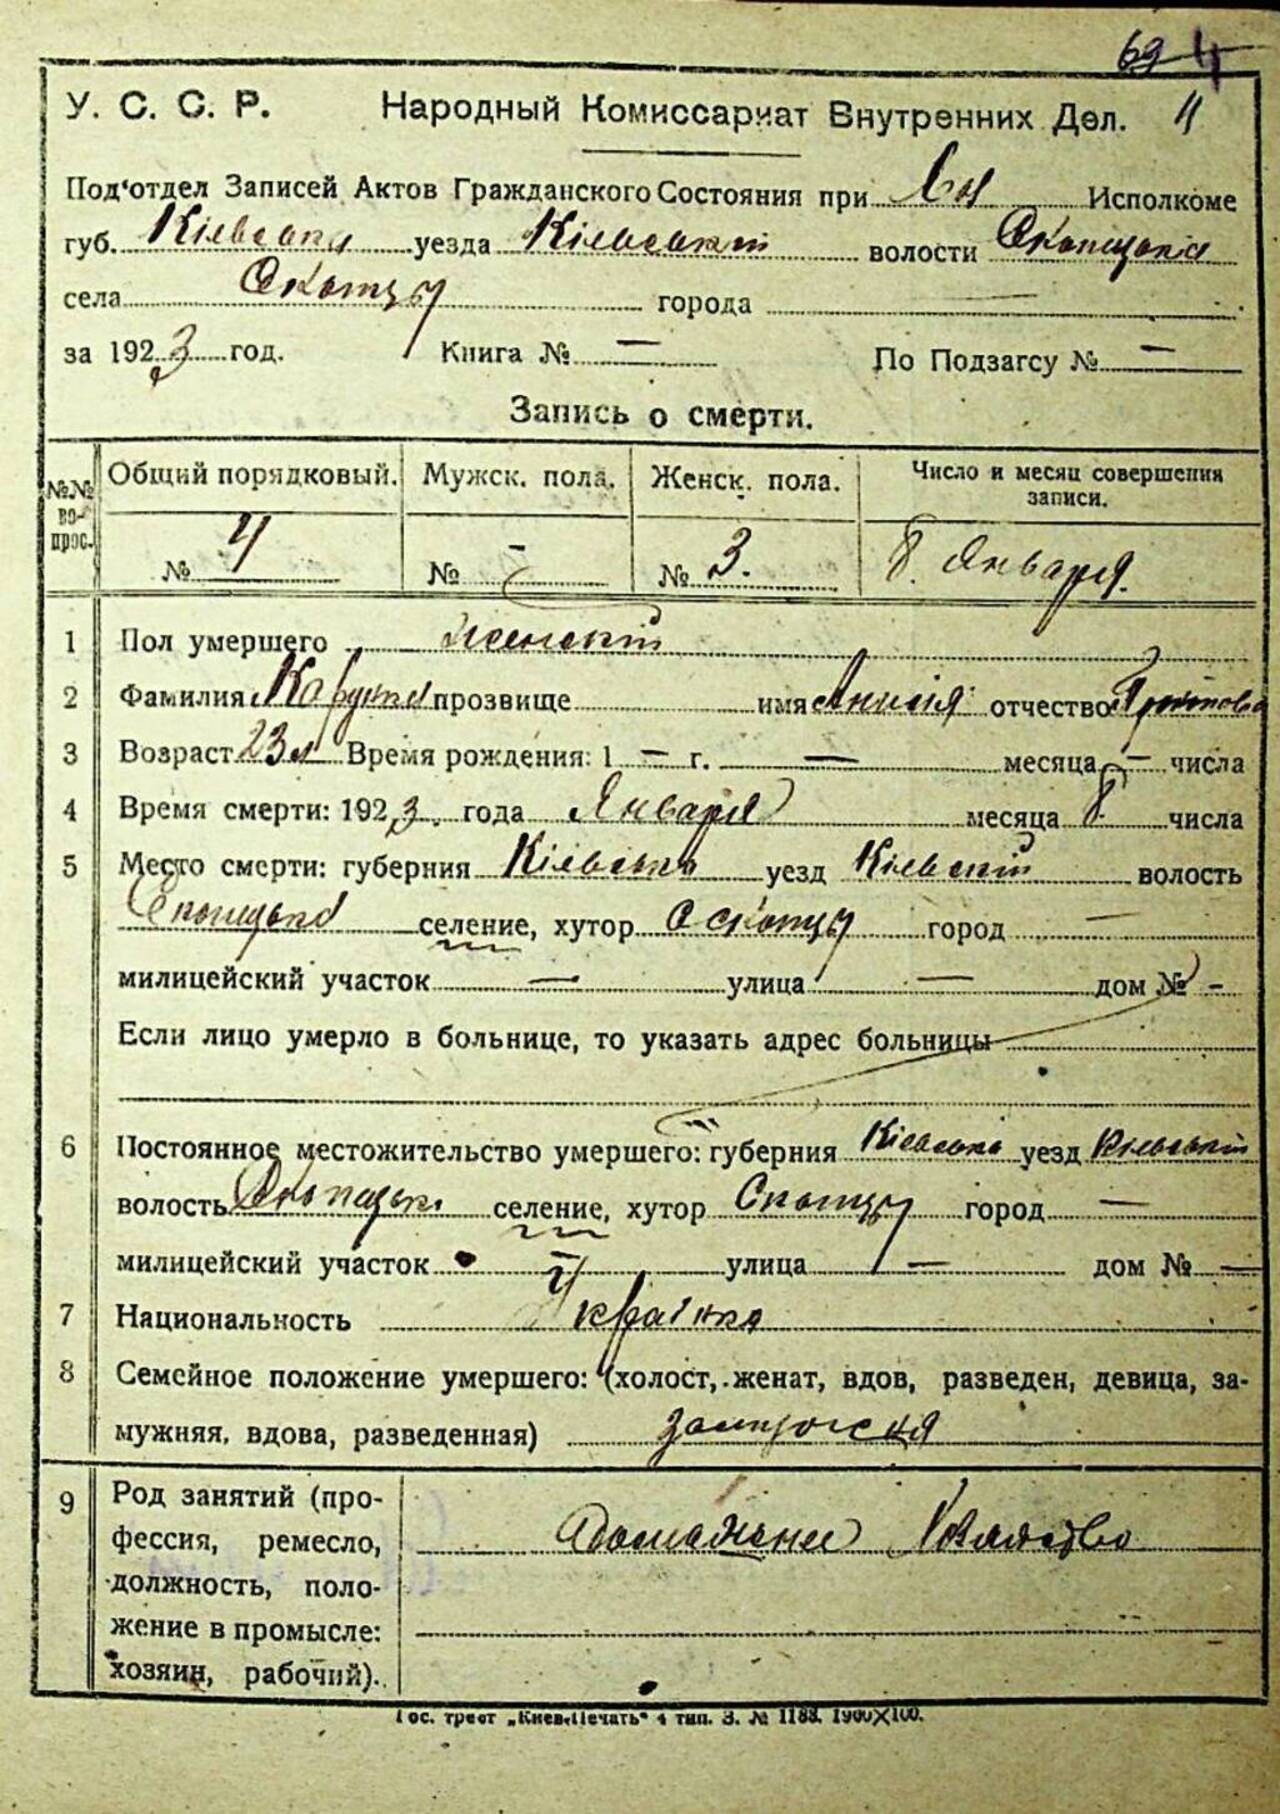 69 4
У. С. С. Р. Народный Комиссариат Внутренних Дел. 11
Под‘отдел Записей Актов Гражданского Состояния при Исполкоме
губ. Кіевська уезда Кіевський волости
села города —
за 1923 год. Книга № — По Подзагсу № —
Запись о смерти.
№№ во-прос. Общий порядковый. Мужск. пола. Женск. пола. Число и месяц совершения записи.
№ 4 № - № 3. 8. Января.
1 Пол умершего женскій
2 Фамилия прозвище имя отчество
3 Возраст 23 л Время рождения: 1 — г. — месяца — числа
4 Время смерти: 1923. года Января месяца 8 числа
5 Место смерти: губерния Кіевська уезд Кіевскій волость
селение, хутор город —
милицейский участок — улица — дом № -
Если лицо умерло в больнице, то указать адрес больницы
6 Постоянное местожительство умершего: губерния Кіевська уезд Кіевський
волость селение, хутор город —
милицейский участок — улица — дом № —
7 Национальность Українка
8 Семейное положение умершего: (холост, женат, вдов, разведен, девица, за-
мужняя, вдова, разведенная) замужняя
9 Род занятий (про-
фессия, ремесло, Домашнее
должность, поло-
жение в промысле:
хозяин, рабочий).
Гос. трест „Киев-Печать“ 4 тип. З. № 1188. 1900×100.